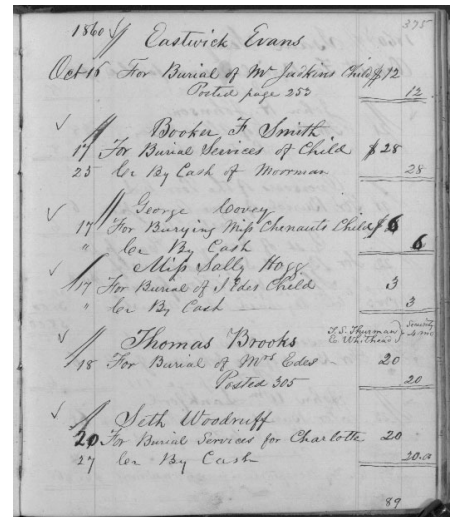 375
1860 Eastwick Evans
Oct 15 For Burial of Mr Judkins Child $12
Posted page 253 12
Booker F Smith
17 For Burial Services of Child $28
25 Cr By Cash of Moorman 28
George Covey
17 For Burying Miss Chenauts Child $6
" Cr By Cash 6
Miss Sally Hogg
17 For Burial of Edes Child 3
" Cr By Cash 3
Thomas Brooks T. S. Thurman
C Whithead
18 For Burial of Mrs Edes 20
Posted 305 20
Seth Woodruff
20 For Burial Services for Charlotte 20
27 Cr By Cash 20.
89